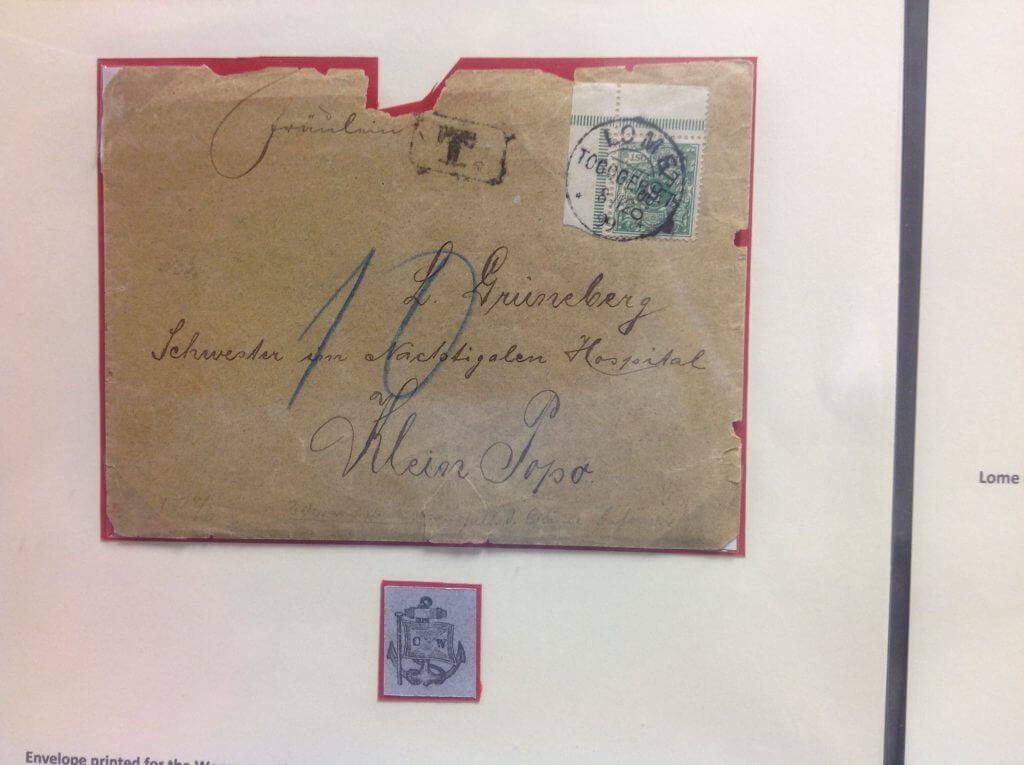 Fräulein
T.
LOME
TOGOGEBIET
10
L. Grüneberg
Schwester im Nachtigalen Hospital
Klein Popo
C W
Lome
Envelope printed for the